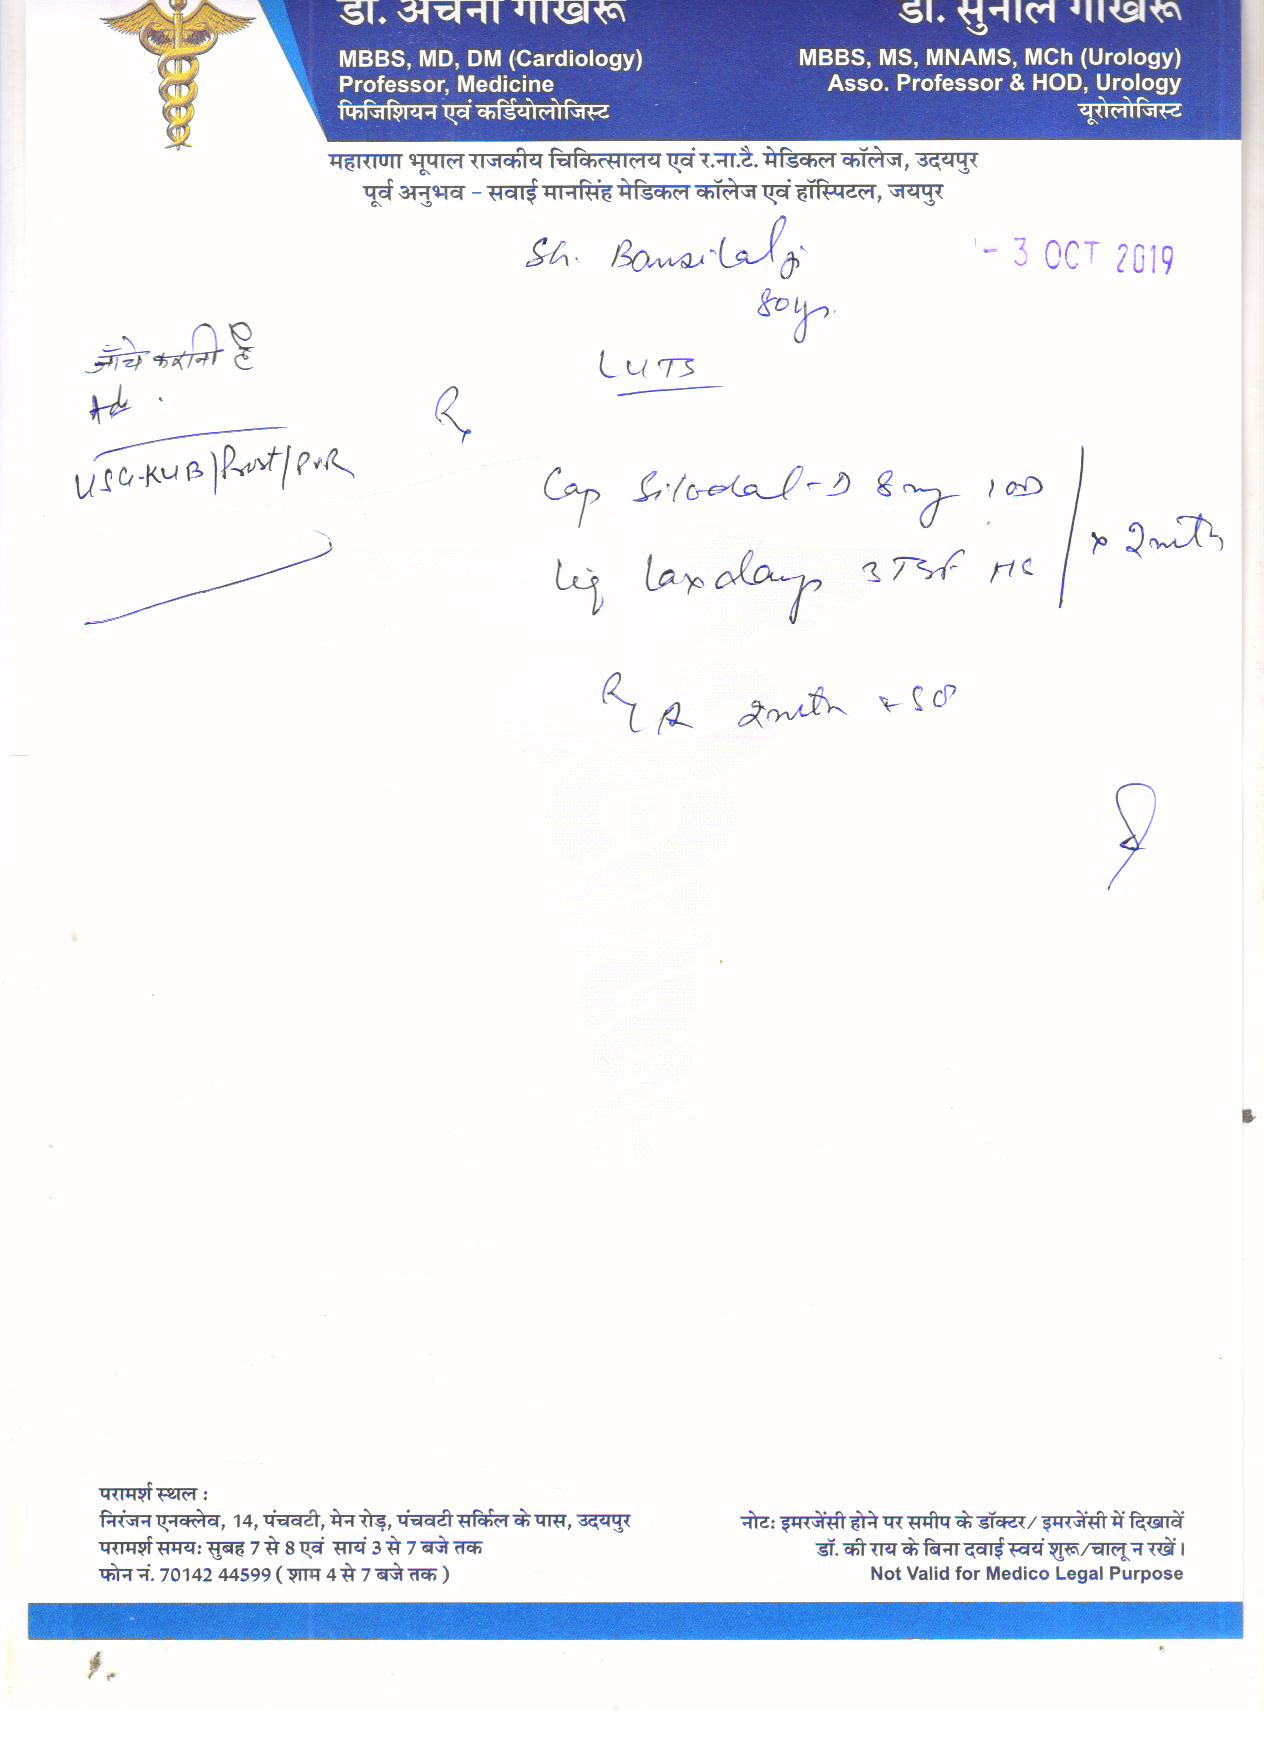 डॉ. अर्चना गोखरू
MBBS, MD, DM (Cardiology)
Professor, Medicine
फिजिशियन एवं कर्डियोलोजिस्ट
डॉ. सुनील गोखरू
MBBS, MS, MNAMS, MCh (Urology)
Asso. Professor & HOD, Urology
यूरोलोजिस्ट
महाराणा भूपाल राजकीय चिकित्सालय एवं र.ना.टै. मेडिकल कॉलेज, उदयपुर
पूर्व अनुभव – सवाई मानसिंह मेडिकल कॉलेज एवं हॉस्पिटल, जयपुर
Sh. Bansilal ji
- 3 OCT 2019
80 yr.
जाँचे करानी है
Ad
USG-KUB/Prost/PVR
LUTS
Rx
Cap Silodal-D 8mg 1 OD
x 2mth
Liq Laxdays 3 TSF HS
R/A 2mth + SOS
परामर्श स्थल :
निरंजन एनक्लेव, 14, पंचवटी, मेन रोड़, पंचवटी सर्किल के पास, उदयपुर
परामर्श समय: सुबह 7 से 8 एवं सायं 3 से 7 बजे तक
फोन नं. 70142 44599 ( शाम 4 से 7 बजे तक )
नोट: इमरजेंसी होने पर समीप के डॉक्टर/ इमरजेंसी में दिखावें
डॉ. की राय के बिना दवाई स्वयं शुरू/चालू न रखें।
Not Valid for Medico Legal Purpose